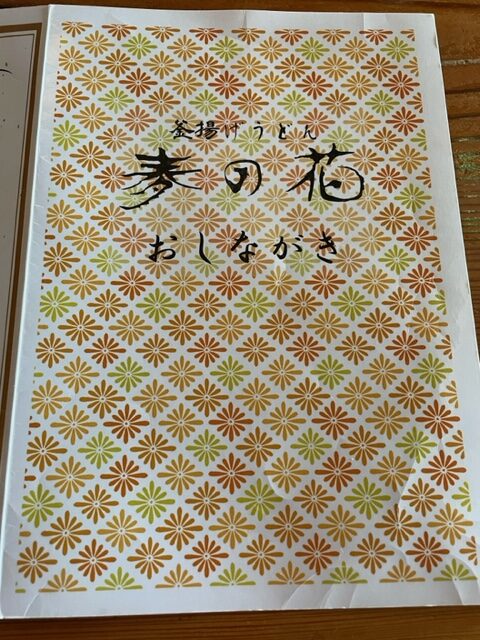 釜揚げうどん
麦の花
おしながき